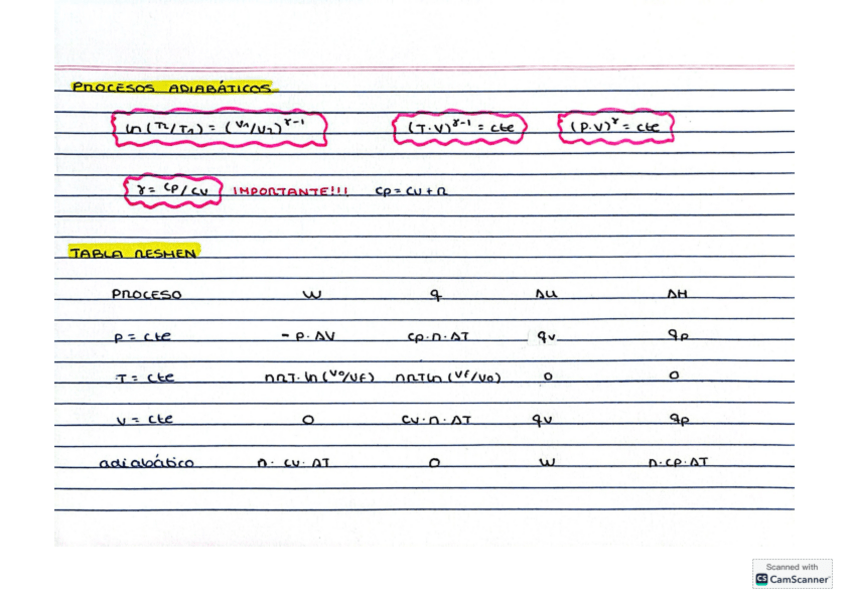 PROCESOS ADIABÁTICOS
ln (T2/T1) = (V1/V2)^γ-1 (T·V)^γ-1 = cte (P·V)^γ = cte
γ = CP/CV IMPORTANTE!!! CP = CV + R
TABLA RESMEN
PROCESO W q ΔU ΔH
P = cte - P·ΔV CP·n·ΔT qv qp
T = cte nRT·ln (V0/VF) nRTln (VF/V0) 0 0
V = cte 0 CV·n·ΔT qv qp
adiabático n·CV·ΔT 0 W n·CP·ΔT
Scanned with
CS CamScanner